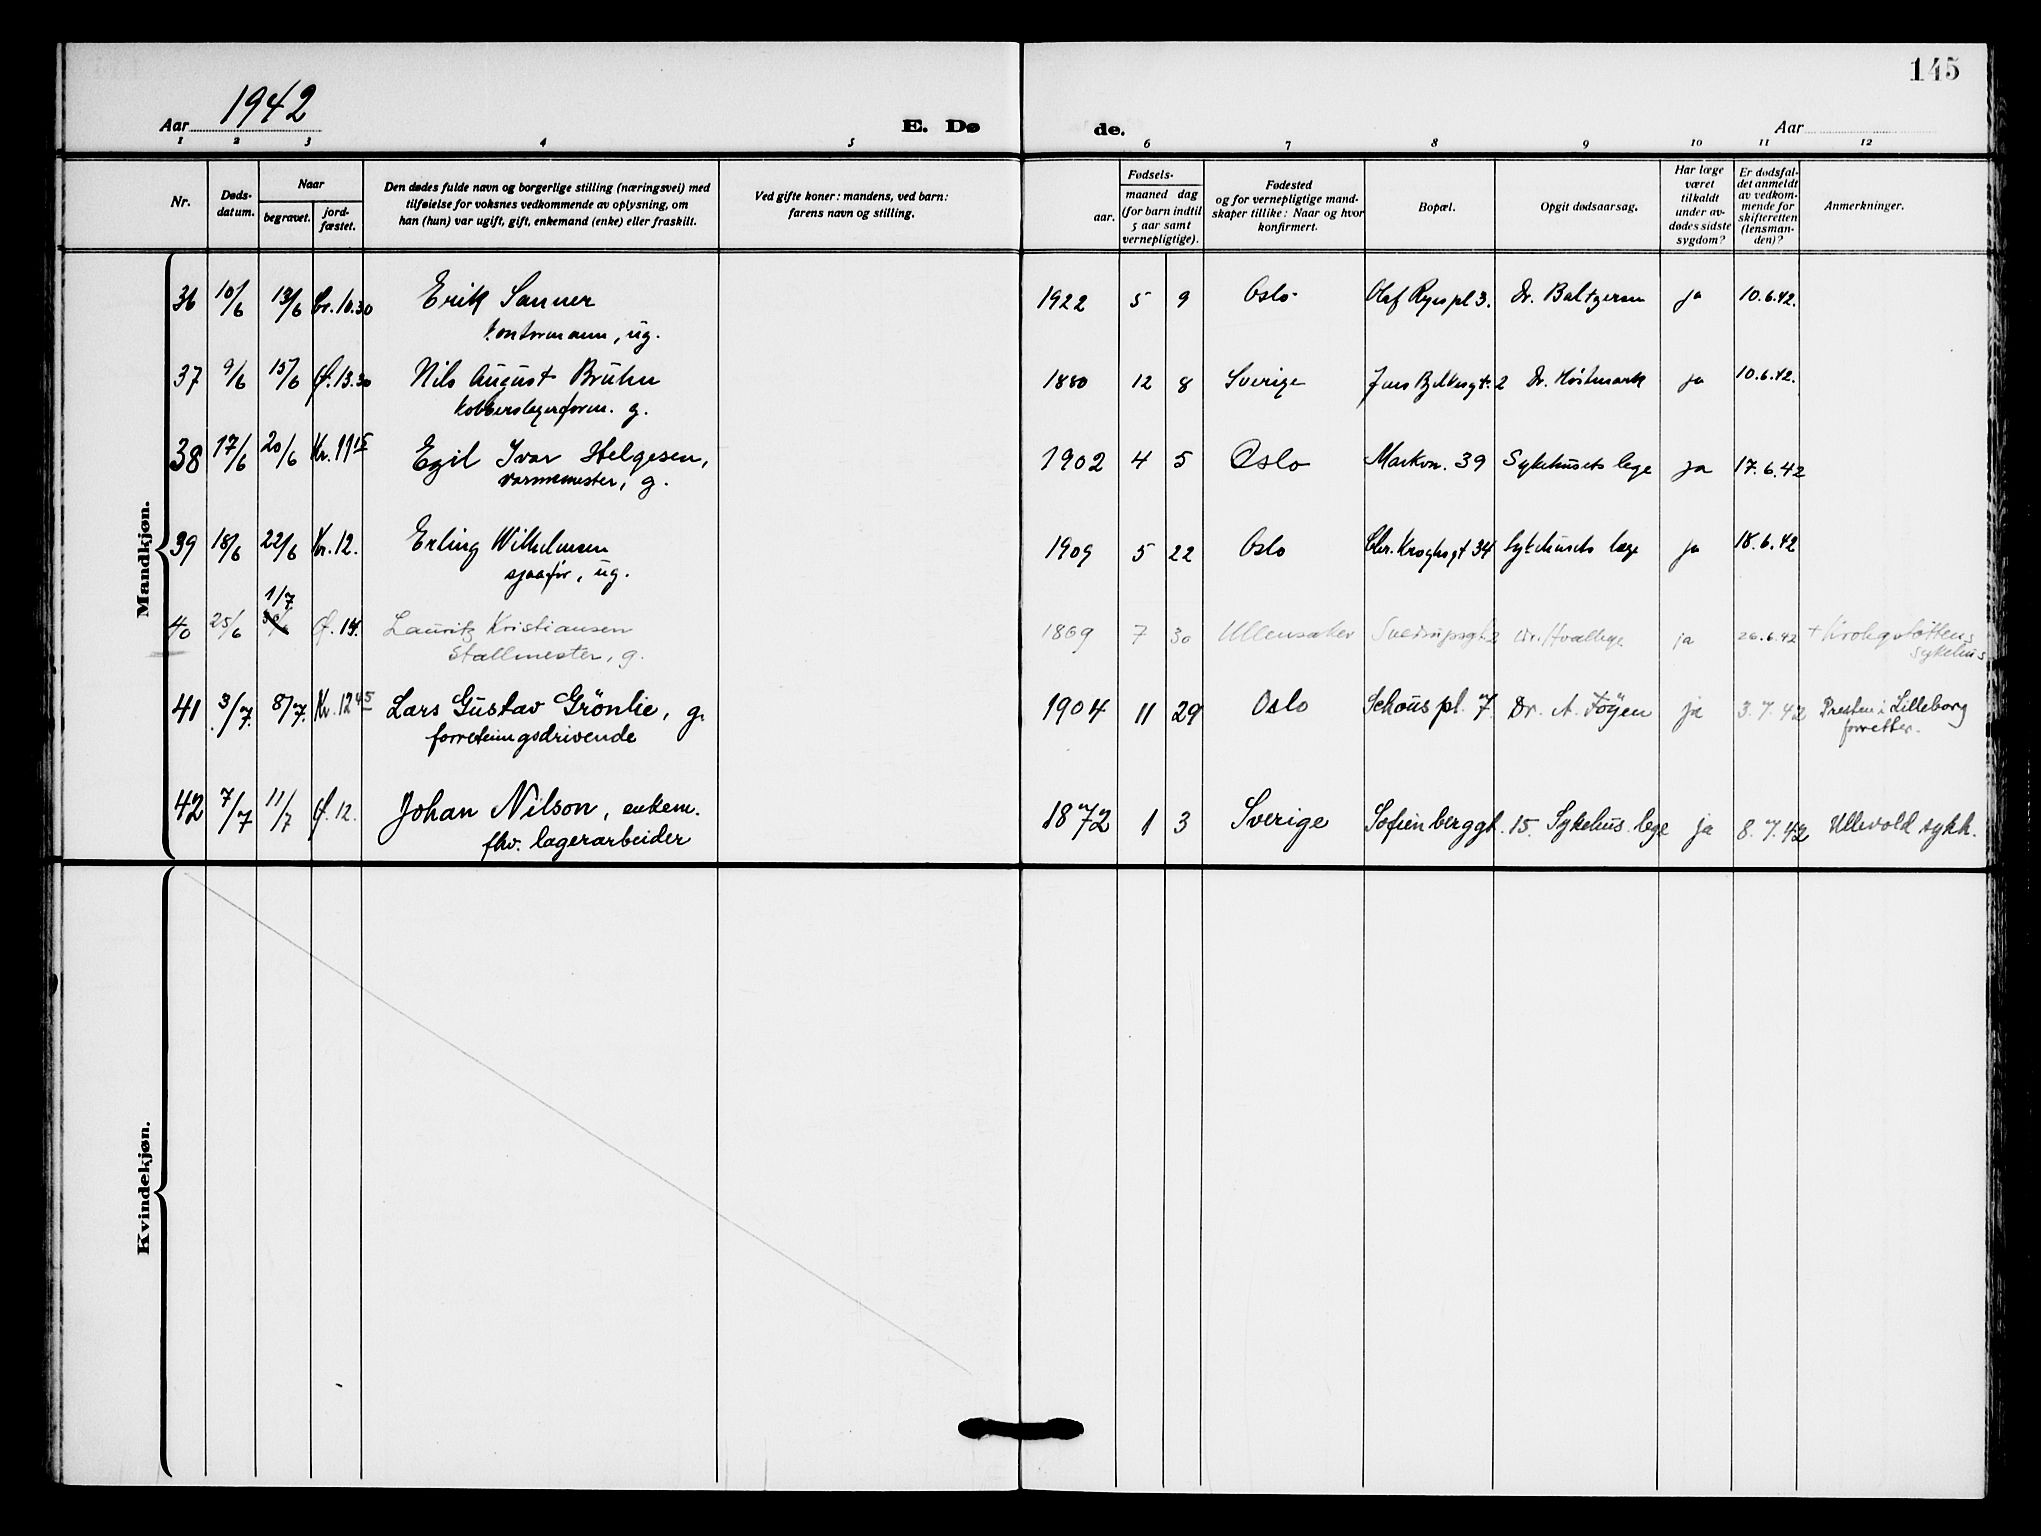 145
Aar 1942
E. Dø
de.
Aar
1 2 3 4 5 6 7 8 9 10 11 12
Nr.
Døds-
datum.
Naar
begravet.
jord-
fæstet.
Den dødes fulde navn og borgerlige stilling (næringsvei) med
tilføielse for voksnes vedkommende av oplysning, om
han (hun) var ugift, gift, enkemand (enke) eller fraskilt.
Ved gifte koner: mandens, ved barn:
farens navn og stilling.
Fødsels-
aar.
maaned dag
(for barn indtil
5 aar samt
vernepligtige).
Fødested
og for vernepligtige mand-
skaper tillike: Naar og hvor
konfirmert.
Bopæl.
Opgit dødsaarsag.
Har læge
været
tilkaldt
under av-
dødes sidste
sygdom?
Er dødsfal-
det anmeldt
av vedkom-
mende for
skifteretten
(lensman-
den)?
Anmerkninger.
Mandkjøn.
36 10/6 13/6 Cr. 10.30 Erik Sanner 1922 5 9 Oslo Olaf Ryes pl 3. Dr. Baltzersen ja 10.6.42.
kontormann, ug.
37 9/6 15/6 Ø. 13.30 Nils August Bruhn 1880 12 8 Sverige Jens Bjelkesgt. 2 Dr. Høstmark ja 10.6.42.
kobberslagerform. g.
38 17/6 20/6 Kr. 11 15 Egil Ivar Helgesen, 1902 4 5 Oslo Markvn. 39 Sykehusets lege ja 17.6.42
varmemester, g.
39 18/6 22/6 Kr. 12. Erling Wilhelmsen 1909 5 22 Oslo Chr. Kroghsgt 34 Sykehusets læge ja 18.6.42
sjaafør, ug.
1/7
40 25/6 30/6 Ø. 14. Lauritz Kristiansen 1869 7 30 Ullensaker Sverdrupsgt 2 Dr. ja 26.6.42 + Krohgstøttens
Stallmester, g. sykehus
41 3/7. 8/7. Kr. 12 45 Lars Gustav Grönlie, g. 1904 11 29 Oslo Schous pl. 7 Dr. A. Föyen ja 3.7.42 Presten i Lilleborg
forretningsdrivende forretter.
42 7/7 11/7 Ø. 12. Johan Nilson, enkem. 1872 1 3 Sverige Sofienberggt. 15. Sykehus. lege ja 8.7.42 Ullevold sykh.
fhv. lagerarbeider
Kvindekjøn.